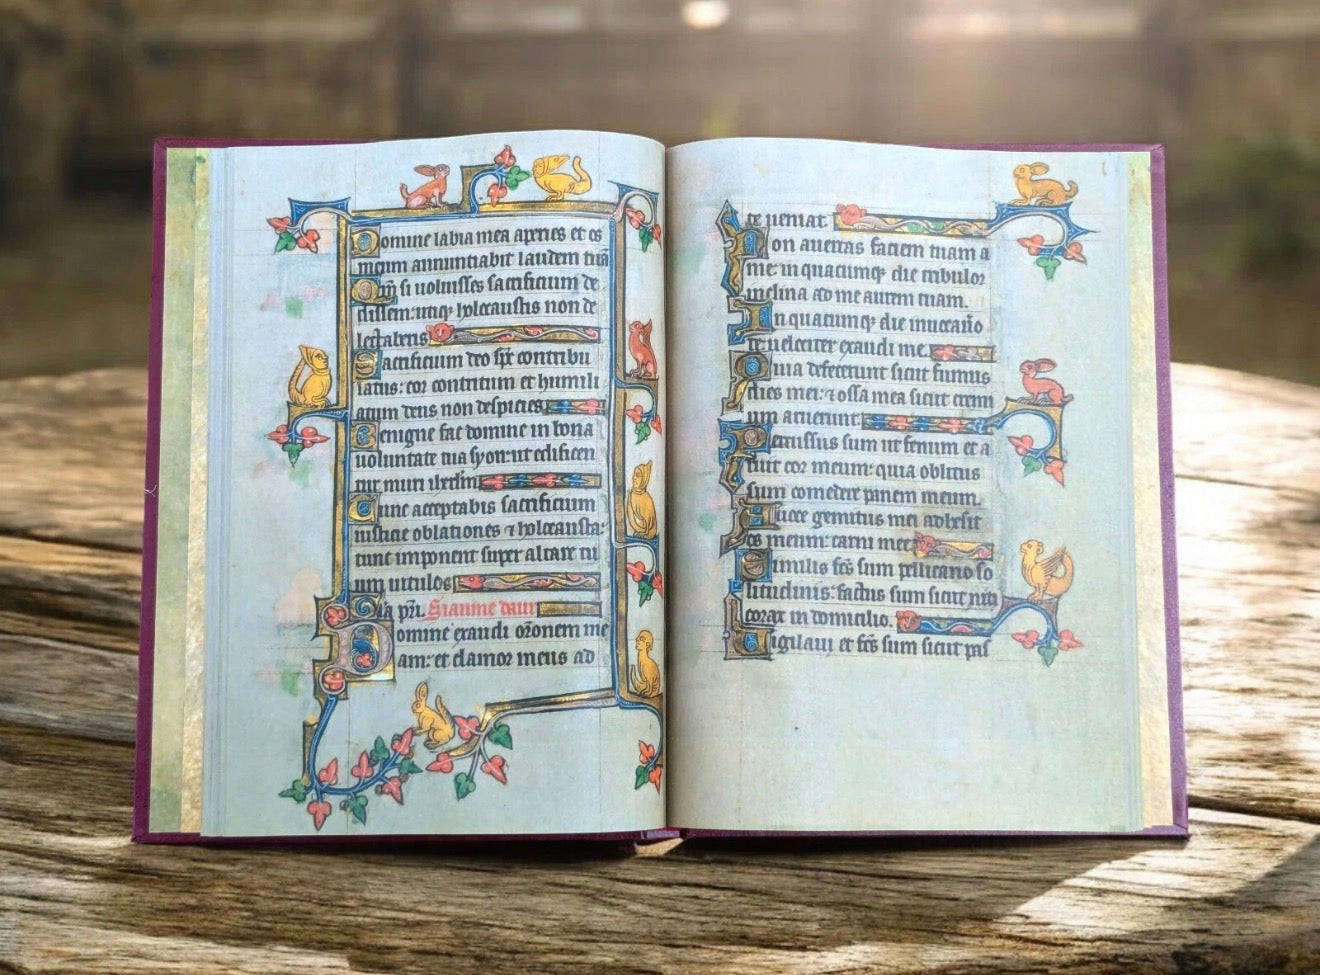 Domine labia mea aperies et os
meum annunciabit laudem tuā
Qm̄ si uoluisses sacrificium de
dissem: utiqꝫ holocaustis non de
lectaberis
Sacrificium deo sp̄c contribu
latus: cor contritum et humili
atum deus non despicies
Benigne fac domine in bona
uoluntate tua syon: ut edificen
tur muri ierl̄m
Tunc acceptabis sacrificium
iusticie oblationes ⁊ holocausta:
tunc imponent super altare tu
um uitulos
pr̄i.
Domine exaudi or̄onem me
am: et clamor meus ad
te ueniat.
Non auertas faciem tuam a
me: in quacumqꝫ die tribulor
inclina ad me aurem tuam.
In quacumqꝫ die inuocau̅o
te uelociter exaudi me.
Quia defecerunt sicut fumus
dies mei: ⁊ ossa mea sicut crem
um aruerunt.
Percussus sum ut fenum et a
ruit cor meum: quia oblitus
sum comedere panem meum.
A uoce gemitus mei adhesit
os meum: carni mee
Similis fc̄s sum pellicano so
litudinis: factus sum sicut nicti
corax in domicilio.
Vigilaui et fc̄s sum sicut pas